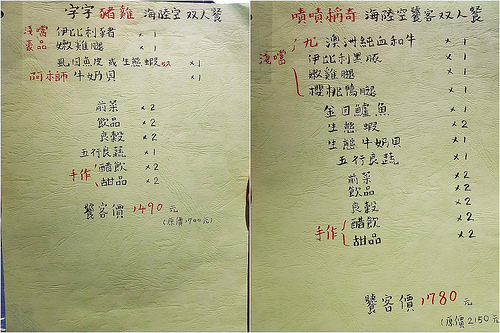 字字豬雞 海陸空 双人餐
淺嚐 伊比利豬 x 1
豪品 嫩雞腿 x 1
乳回魚皮 或 生態蝦 x1
阿本師 牛奶貝 x1
前菜 x 2
飲品 x 2
良穀 x 2
五行良蔬 x 1
手作 醋飲 x 2
甜品 x 2
饕客價 1490 元
(原價1700元)
嘖嘖稱奇 海陸空饕客双人餐
九 澳洲純血和牛 x 1
淺嚐 伊比利黑豚 x 1
嫩雞腿 x 1
櫻桃鴨腿 x 1
金目鱸魚 x 1
生態蝦 x 2
生態牛奶貝 x 1
五行良蔬 x 1
前菜 x 2
飲品 x 2
良穀 x 2
手作 醋飲 x 2
甜品 x 2
饕客價 1780 元
(原價2150元